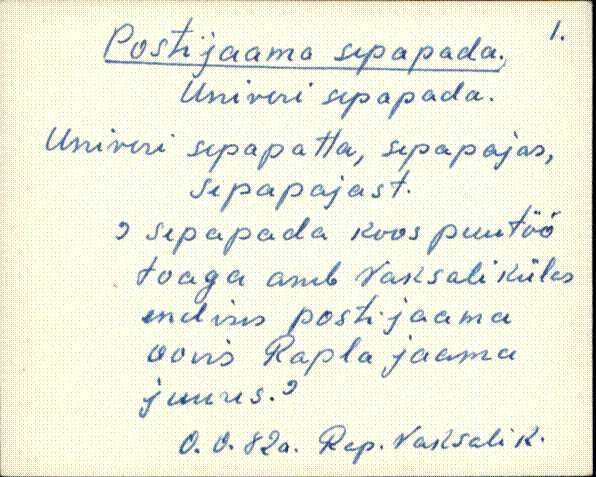 1.
Postijaama sepapada.
Univeri sepapada.
Univeri sepapatta, sepapajas,
sepapajast.
sepapada koos puutöö
toaga asub Vaksali külas
endises postijaama
hoovis Rapla jaama
juures.
O. O. 82a. Rap. Vaksali k.